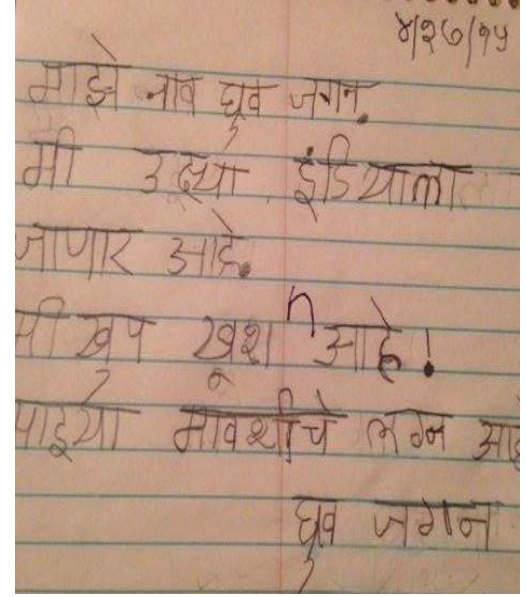 ४/२७/१५
माझे नाव ध्रुव जगन.
मी उद्या इंडियाला
जाणार आहे.
मी खुप खूश आहे!
माझ्या मावशीचे लग्न आहे
ध्रुव जगन